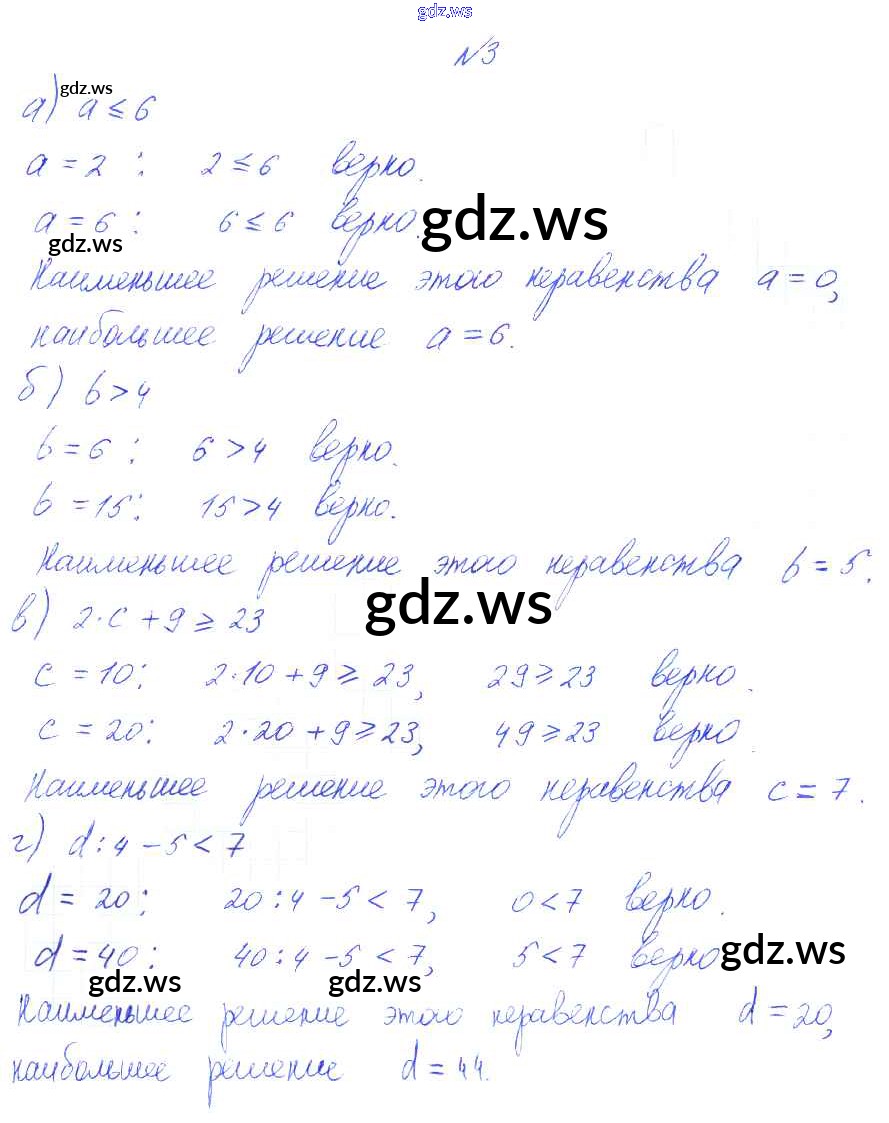 gdz.ws
№3
а) a ≤ 6
gdz.ws
a = 2 : 2 ≤ 6 верно.
a = 6 : 6 ≤ 6 верно.
gdz.ws
gdz.ws
Наименьшее решение этого неравенства a = 0,
наибольшее решение a = 6.
б) b > 4
b = 6 : 6 > 4 верно.
b = 15 : 15 > 4 верно.
Наименьшее решение этого неравенства b = 5.
gdz.ws
в) 2·c + 9 ≥ 23
c = 10 : 2·10 + 9 ≥ 23, 29 ≥ 23 верно.
c = 20 : 2·20 + 9 ≥ 23, 49 ≥ 23 верно.
Наименьшее решение этого неравенства c = 7.
г) d : 4 − 5 < 7
d = 20 : 20 : 4 − 5 < 7, 0 < 7 верно.
d = 40 : 40 : 4 − 5 < 7, 5 < 7 верно
gdz.ws
gdz.ws
gdz.ws
Наименьшее решение этого неравенства d = 20,
наибольшее решение d = 44.